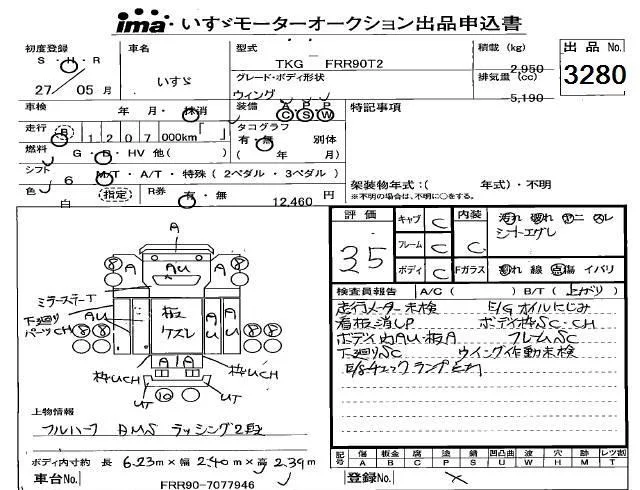 ima いすゞモーターオークション出品申込書
初度登録 車名 型式 積載 (kg) 出品No.
S・H・R いすゞ TKG FRR90T2 2,950 3280
27 05 月 グレード・ボディ形状 排気量 (cc)
ウィング 5,190
車検 年 月・抹消 装備 A B P C S W 特記事項
走行 1207 000km「 」 タコグラフ
有・無 別体
燃料 G・D・HV 他( ) ( 年 月)
シフト 6 M/T・A/T・特殊(2ペダル・3ペダル) 架装物年式:( 年式)・不明
色 白 指定 R券 有・無 12,460 円 ※不明の場合は、不明に○をする。
評価 キャブ C 内装 汚れ 破れ ヤニ スレ
35 フレーム C C
ボディ C Fガラス 割れ 線 点傷 イバリ
検査員報告 A/C ( ) B/T ( 上がり )
走行メーター未検 E/Gオイルにじみ
看板消しP ボディ枠SC・CH
ボディ内AU・板A フレームSC
下廻りSC ウイング作動未検
チェックランプ
A
AU
A A
ミラーステーT
下廻りパーツCH
AU 板 クズレ AU AU
A A
枠UCH 枠UCH
UT UT
上物情報
フルハーフ AMS ラッシング2段
ボディ内寸約 長 6.23m×幅 2.40m×高 2.39m
車台No. FRR90-7077946
記号 傷 板金 腐 塗 錆 凹凸曲 波 穴 跡 レツ割
A B C P S U W H M T
登録No.